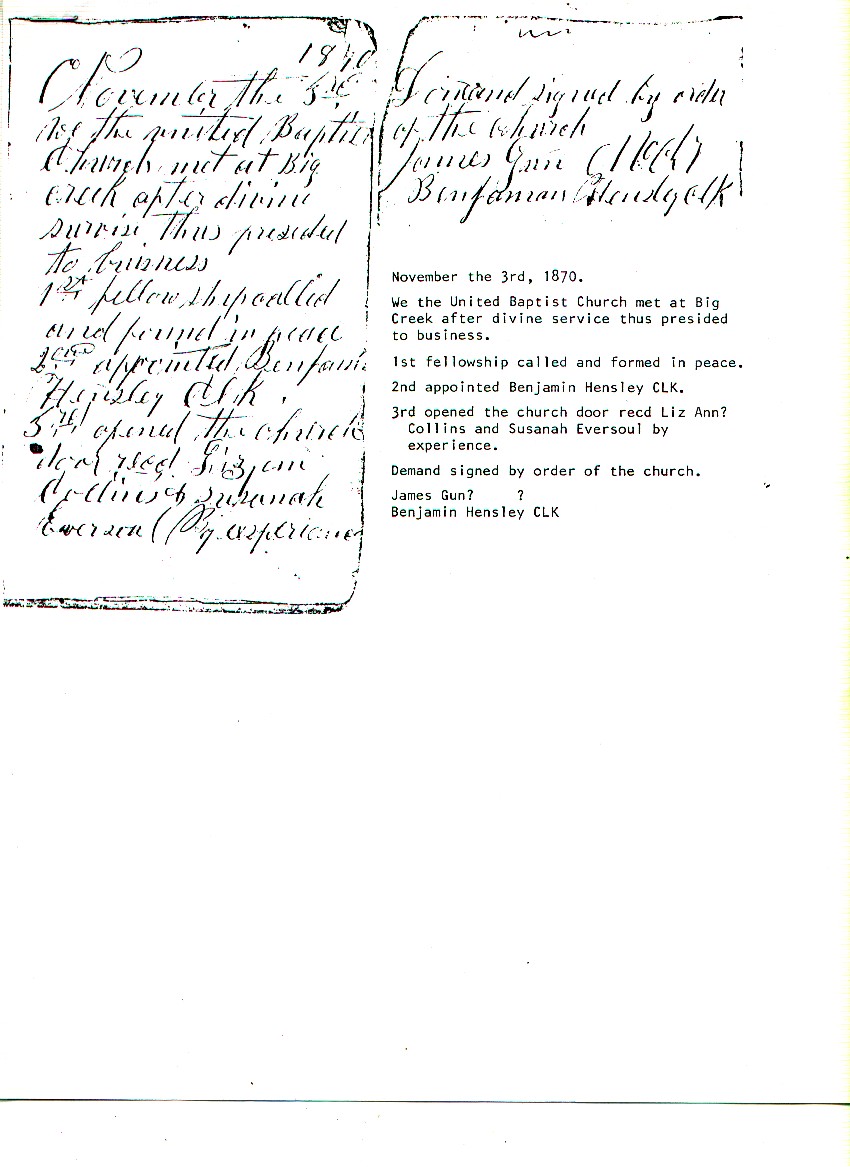 1870
November the 3rd
we the united Baptis
Church met at Big
creek after divine
survise thus preseded
to buisness
1st fellowship called
and found in peace
2cond appointed Benjami
Hensley Clk.
3rd opened the church
door recd Lizjani
Collins & Susanah
Everson By experienc
Domand signed by order
of the church
James Gun
Benjaman Hensley clk
November the 3rd, 1870.
We the United Baptist Church met at Big
Creek after divine service thus presided
to business.
1st fellowship called and formed in peace.
2nd appointed Benjamin Hensley CLK.
3rd opened the church door recd Liz Ann?
Collins and Susanah Eversoul by
experience.
Demand signed by order of the church.
James Gun? ?
Benjamin Hensley CLK